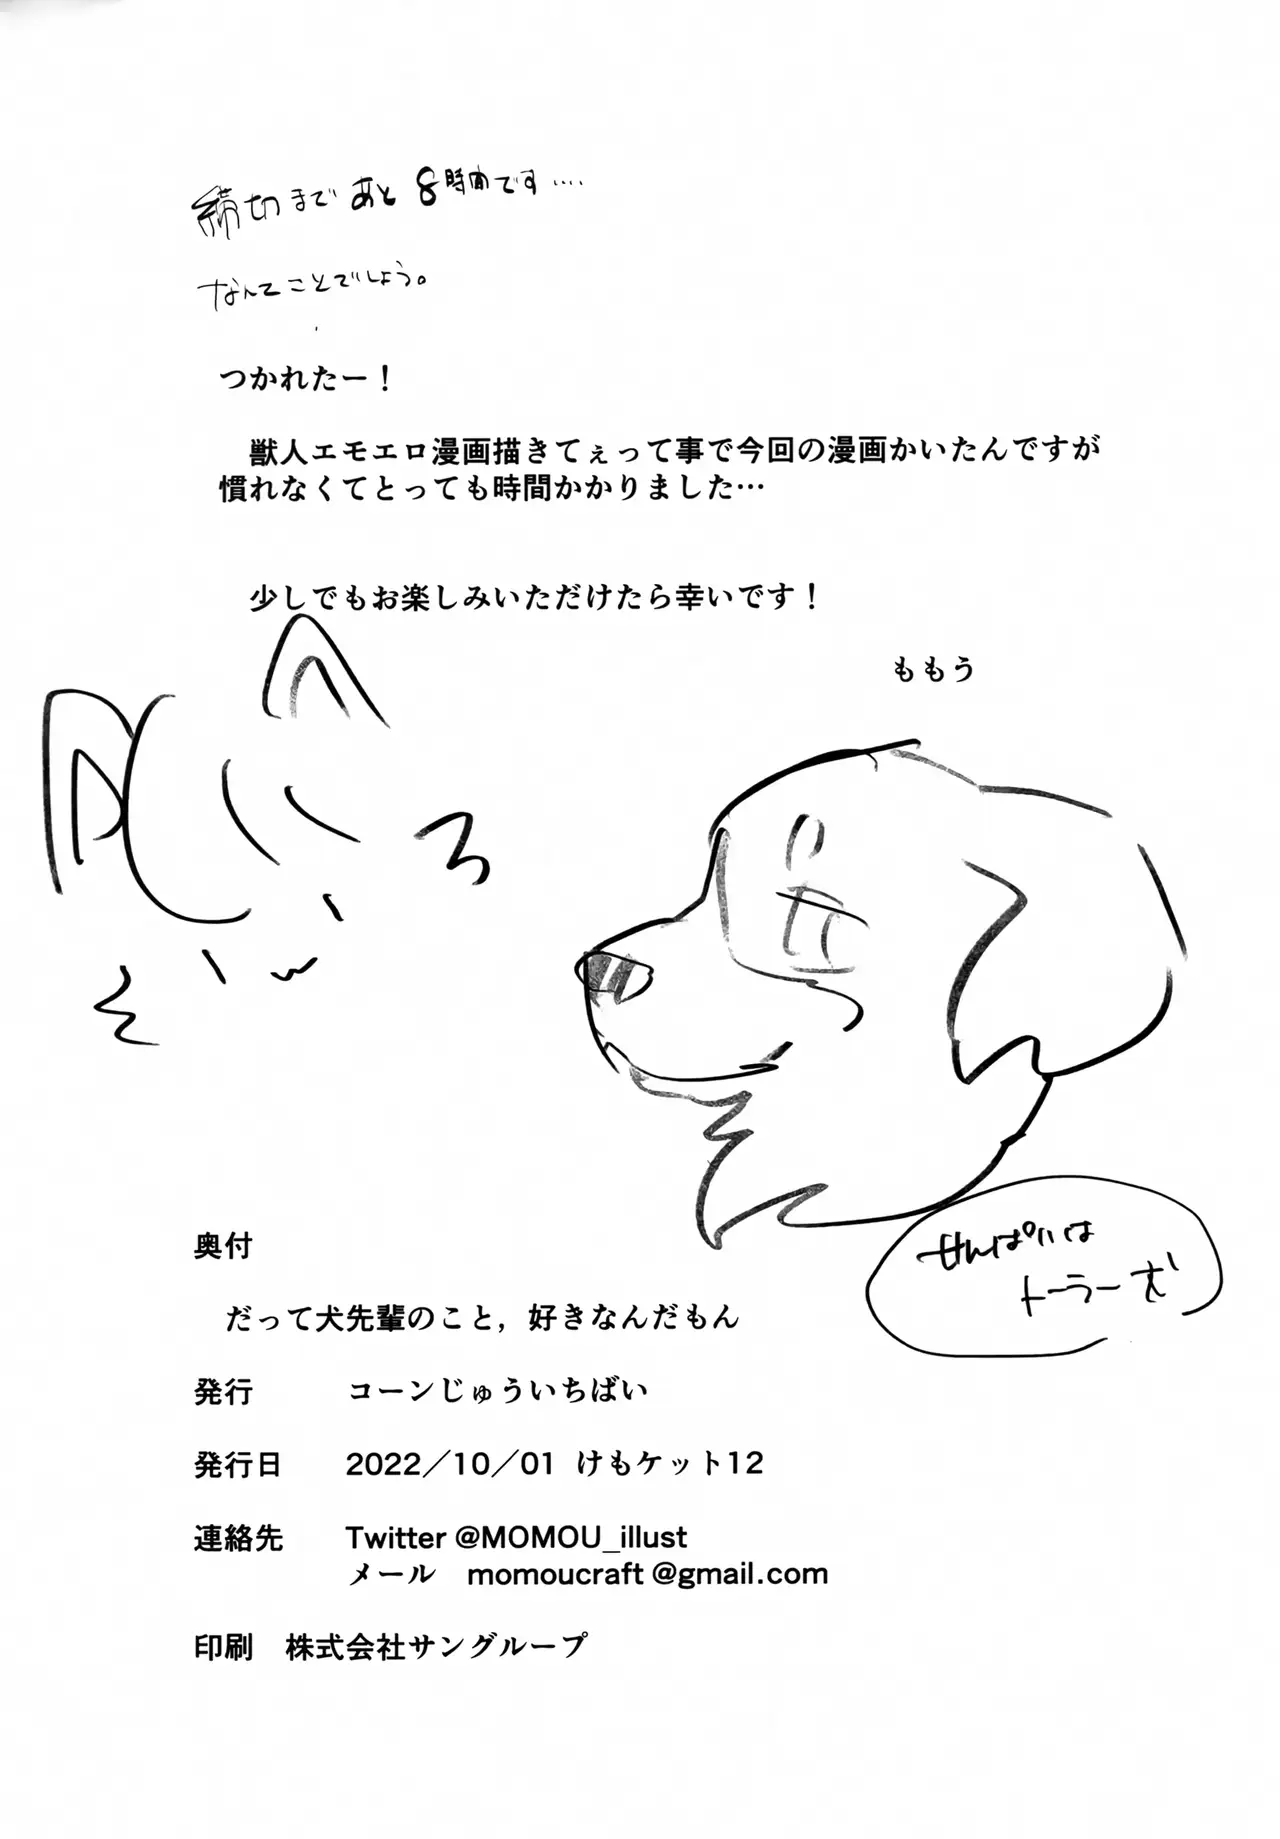 締切まであと8時間です....
なんてことでしょう。
つかれたー！
獣人エモエロ漫画描きてぇって事で今回の漫画かいたんですが
慣れなくてとっても時間かかりました…
少しでもお楽しみいただけたら幸いです！
ももう
せんぱいは
トーラー犬
奥付
だって犬先輩のこと，好きなんだもん
発行 コーンじゅういちばい
発行日 2022／10／01 けもケット12
連絡先 Twitter @MOMOU_illust
メール momoucraft@gmail.com
印刷 株式会社サングループ